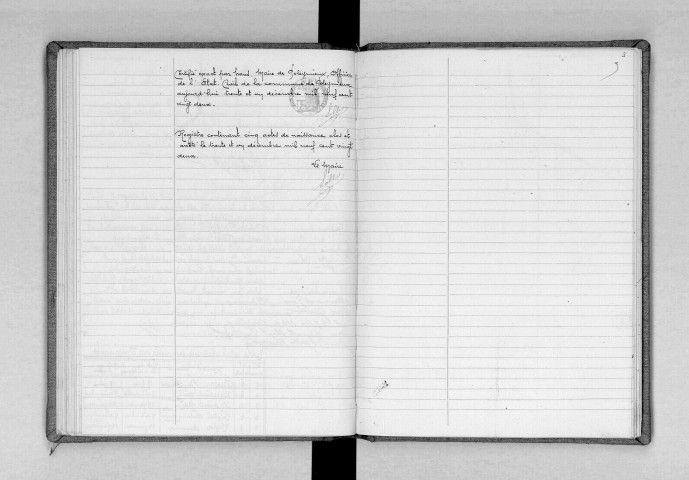 Certifié exact par nous, Maire de Polignieux, Officier
de l'Etat Civil de la commune de Polignieux,
aujourd'hui trente et un décembre mil neuf cent
vingt deux.
Registre contenant cinq actes de naissance clos et
arrêté le trente et un décembre mil neuf cent vingt
deux.
Le Maire
3